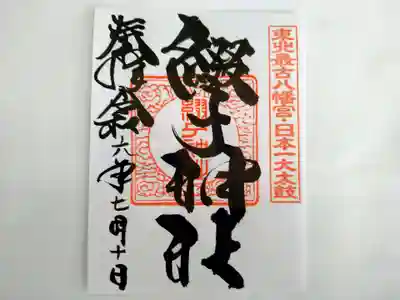 東北最古八幡宮・日本一大太鼓
綴子神社
奉拝 令六年七月十日